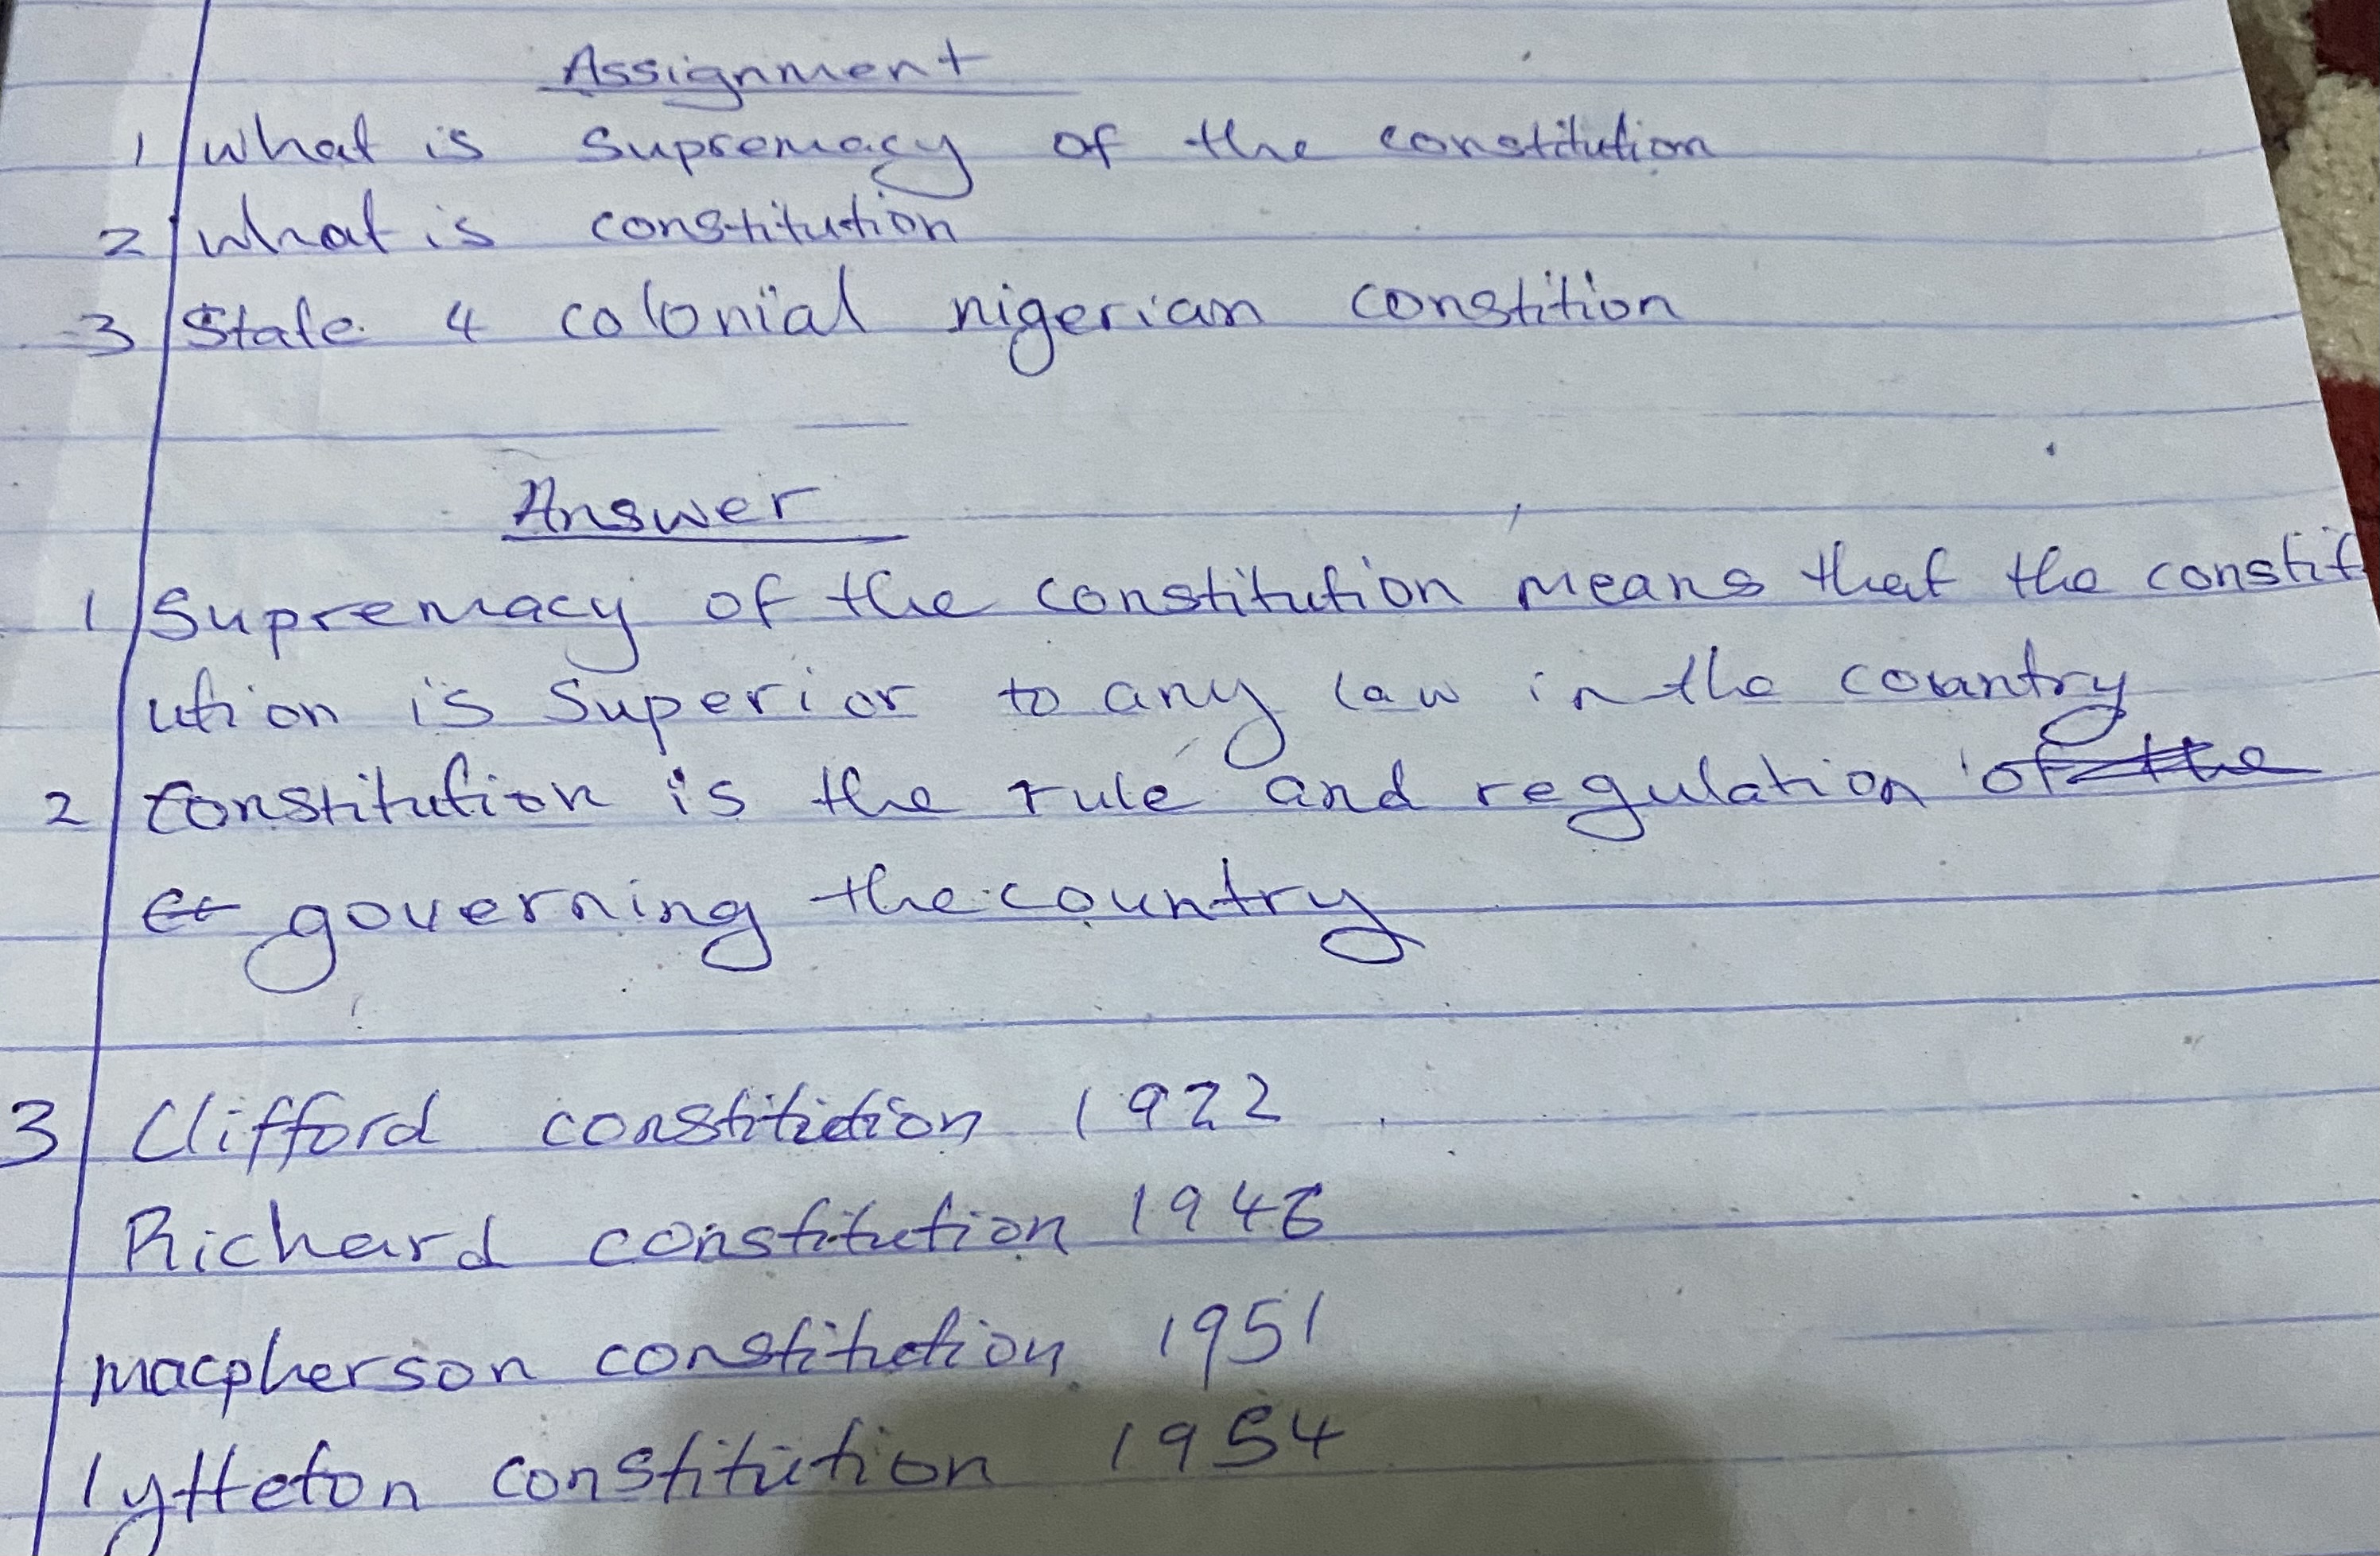 Assignment
1 What is Supremacy of the constitution
2 What is constitution
3 State 4 colonial nigerian constition
Answer
1 Supremacy of the constitution means that the constit
ution is Superior to any law in the country
2 Constitution is the rule and regulation of the
governing the country
3 Clifford constitution 1922
Richard constitution 1946
macpherson constitution 1951
lytteton constitution 1954